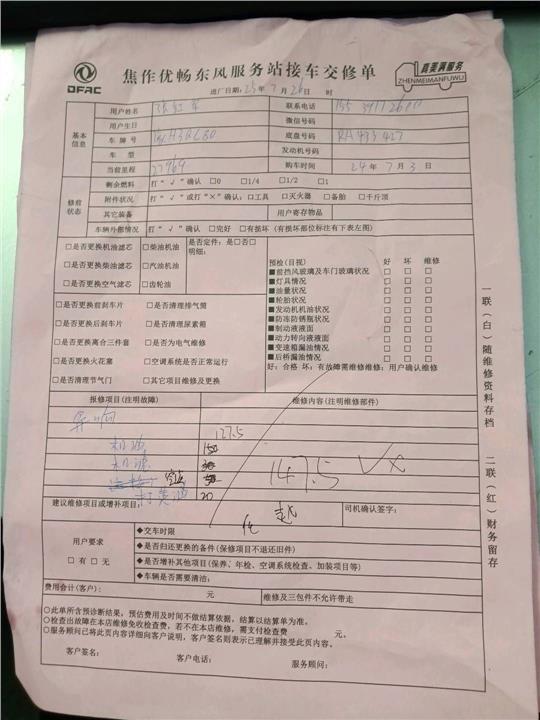 DFAC
焦作优畅东风服务站接车交修单
真美满服务
ZHENMEIMANFUWU
进厂日期：25年7月26日 时
基本信息
用户姓名
联系电话
用户生日
微信号码
车牌号
底盘号码 RA433427
车型
发动机号码
当前里程 27969
购车时间 24年7月3日
修前状态
剩余燃料 打“√”确认 □0 □1/4 □1/2 □1
附件状况 打“√”或打“×”确认：□工具 □灭火器 □备胎 □千斤顶
其它装备
用户寄存物品
车辆外伤情况 打“√”确认 □完好 □有损坏 (有损坏部位标注有下表左图)
□是否更换机油滤芯 □柴油机油
□是否更换柴油滤芯 □汽油机油
□是否更换空气滤芯 □齿轮油
是否定件：是□否□
明细：
□是否更换前刹车片 □是否清理排气筒
□是否更换后刹车片 □是否清理尿素箱
□是否更换离合三件套 □是否为电气维修
□是否更换火花塞 □空调系统是否正常运行
□是否清理节气门 □其它项目维修及更换
预检(目视) 好 坏 维修
■前挡风玻璃及车门玻璃状况 □ □ □
■灯具情况 □ □ □
■油量状况 □ □ □
■轮胎状况 □ □ □
■发动机机油状况 □ □ □
■防冻防锈瓶状况 □ □ □
■制动液液面 □ □ □
■动力转向液液面 □ □ □
■变速箱漏油情况 □ □ □
■后桥漏油情况 □ □ □
好：合格 坏：有故障需维修维修：用户确认维修
报修项目(注明故障)
维修内容(注明维修部件)
异响
127.5
机油 150
机滤
打黄油 20
147.5
建议维修项目或增补项目：
司机确认签字：
用户要求
□有 □无
◆交车时限
◆是否归还更换的备件(保修项目不退还旧件)
◆是否增补其他项目(保养、年检、空调系统检查、加装项目等)
◆车辆是否需要清洁：
费用合计(客户)： 元
维修及三包件不允许带走
○此单所含预诊断结果，预估费用及时间不做结算依据，结算以结算单为准。
○检查出故障在本店维修免收检查费，若不在本店维修，需支付检查费 元。
○服务顾问已将此页内容详细向客户说明，客户签名则表示已理解并接受此页内容。
客户签名： 客户电话： 服务顾问：
一联（白）随维修资料存档 二联（红）财务留存